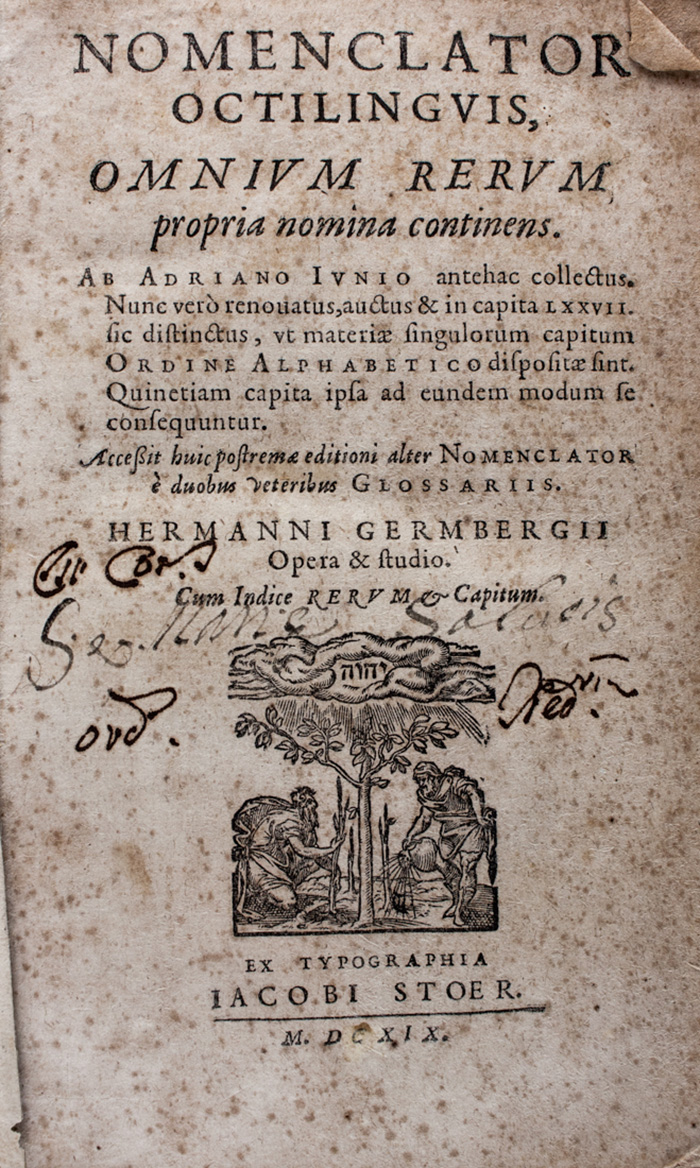 NOMENCLATOR
OCTILINGVIS,
OMNIVM RERVM
propria nomina continens.
AB ADRIANO IVNIO antehac collectus.
Nunc verò renouatus, auctus & in capita LXXVII.
ſic diſtinctus, vt materiæ ſingulorum capitum
ORDINE ALPHABETICO diſpoſitæ ſint.
Quinetiam capita ipſa ad eundem modum ſe
conſequuntur.
Acceßit huic poſtremæ editioni alter NOMENCLATOR
è duobus veteribus GLOSSARIIS.
HERMANNI GERMBERGII
Opera & ſtudio.
Cum Indice RERVM & Capitum.
יהוה
EX TYPOGRAPHIA
IACOBI STOER.
M. DCXIX.